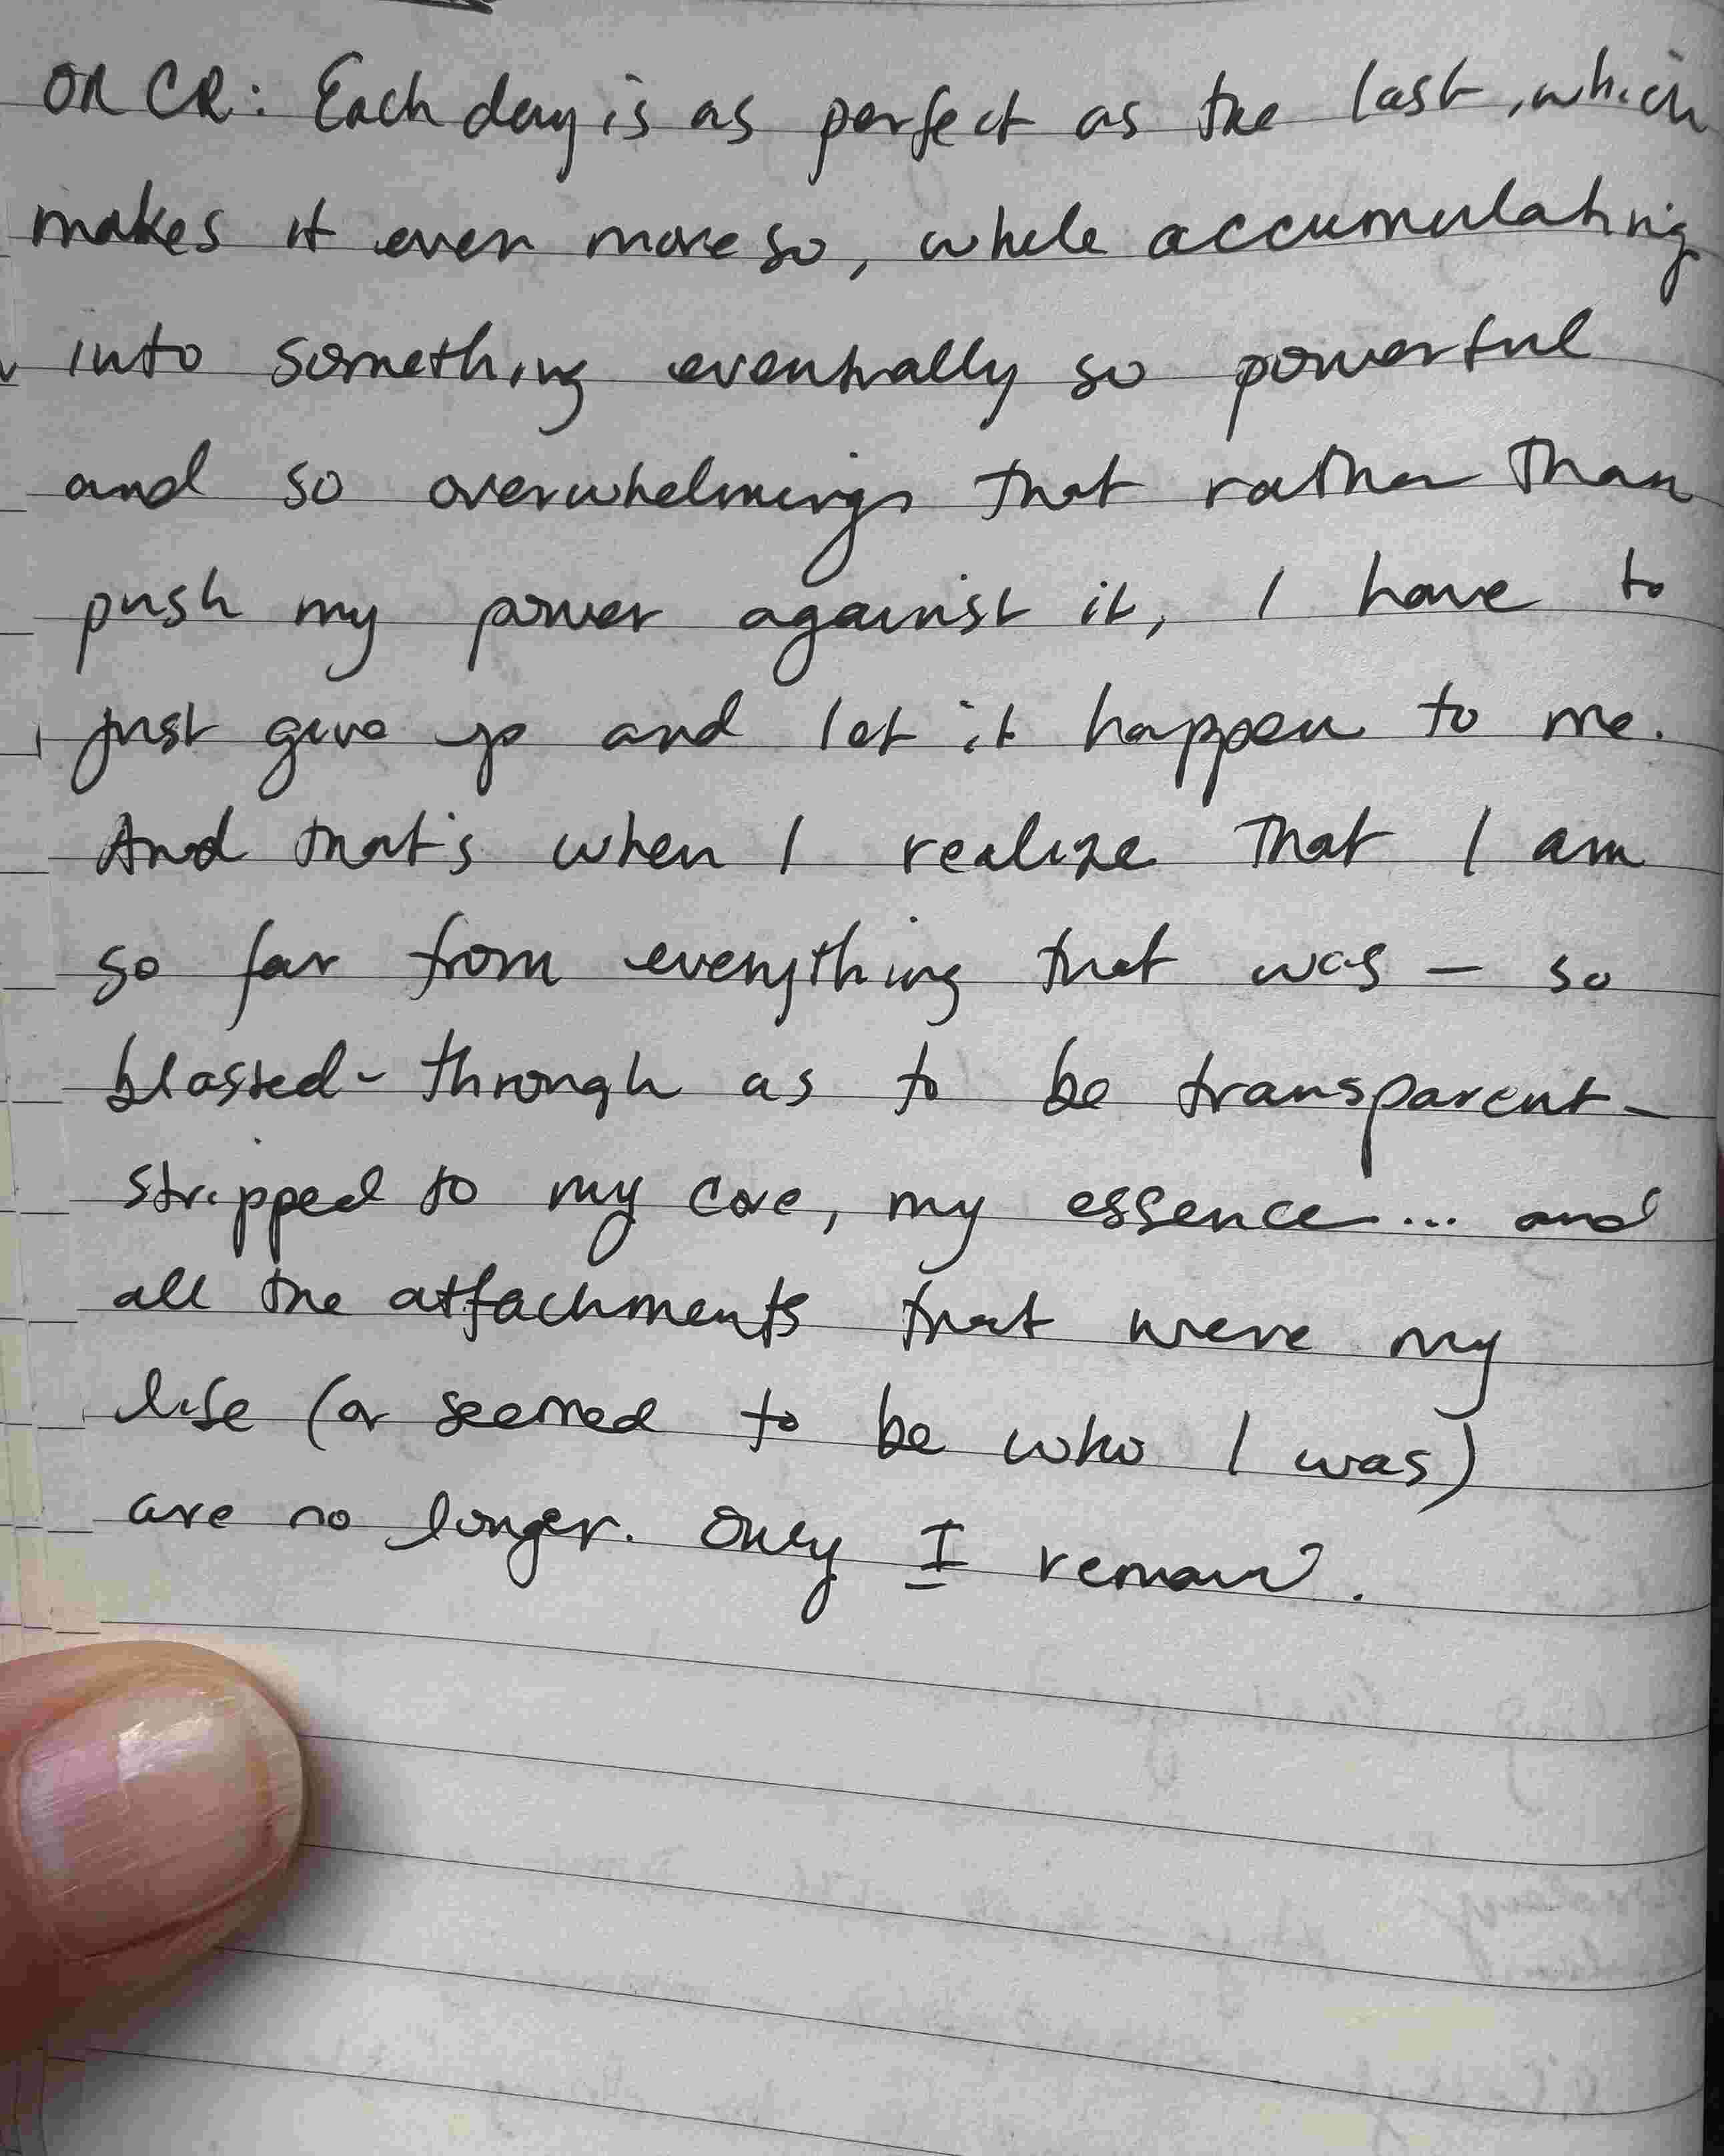 ON CR: Each day is as perfect as the last, which
makes it even more so, while accumulating
into something eventually so powerful
and so overwhelming that rather than
push my power against it, I have to
just give up and let it happen to me.
And that's when I realize that I am
so far from everything that was — so
blasted-through as to be transparent -
stripped to my core, my essence... and
all the attachments that were my
life (or seemed to be who I was)
are no longer. Only I remain.